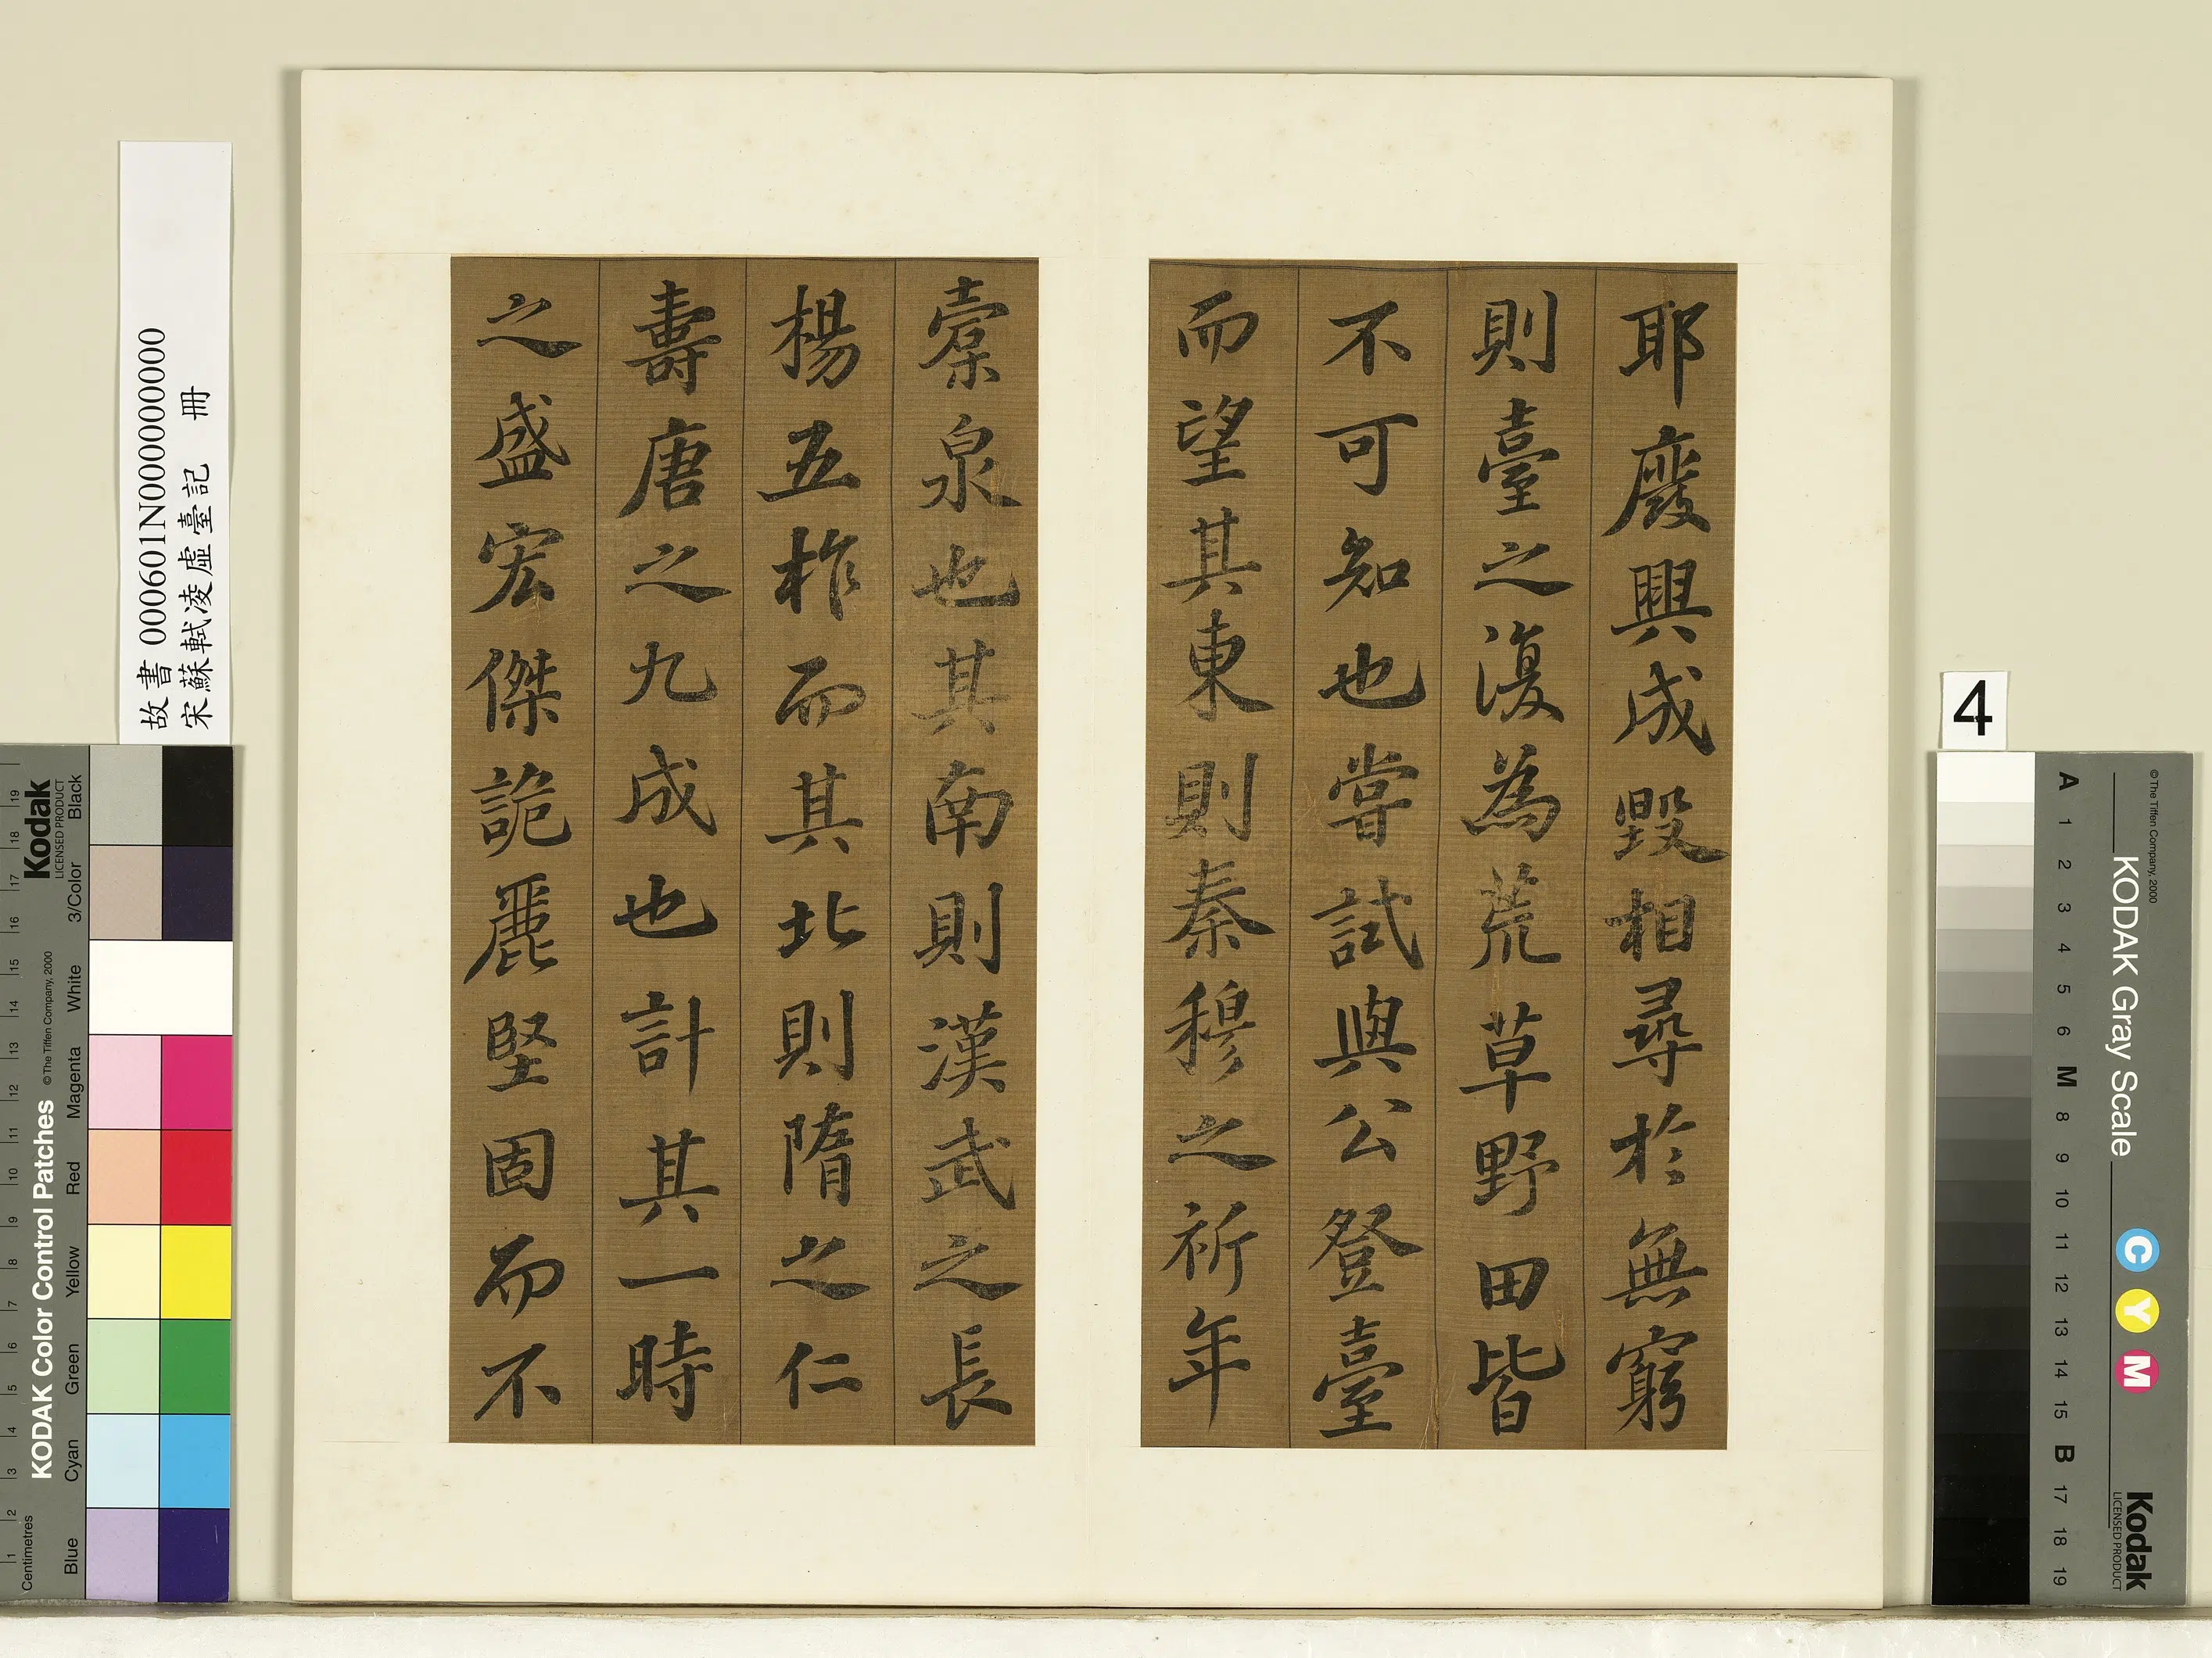 耶廢興成毀相尋於無窮
則臺之復為荒草野田皆
不可知也嘗試與公登臺
而望其東則秦穆之祈年
橐泉也其南則漢武之長
楊五柞而其北則隋之仁
壽唐之九成也計其一時
之盛宏傑詭麗堅固而不
故書 000601N000000000
宋蘇軾凌虛臺記 冊
4
Kodak
LICENSED PRODUCT
KODAK Color Control Patches © The Tiffen Company, 2000
Blue Cyan Green Yellow Red Magenta White 3/Color Black
Centimetres 1 2 3 4 5 6 7 8 9 10 11 12 13 14 15 16 17 18 19
© The Tiffen Company, 2000
KODAK Gray Scale
C Y M
Kodak
LICENSED PRODUCT
A 1 2 3 4 5 6 M 8 9 10 11 12 13 14 15 B 17 18 19